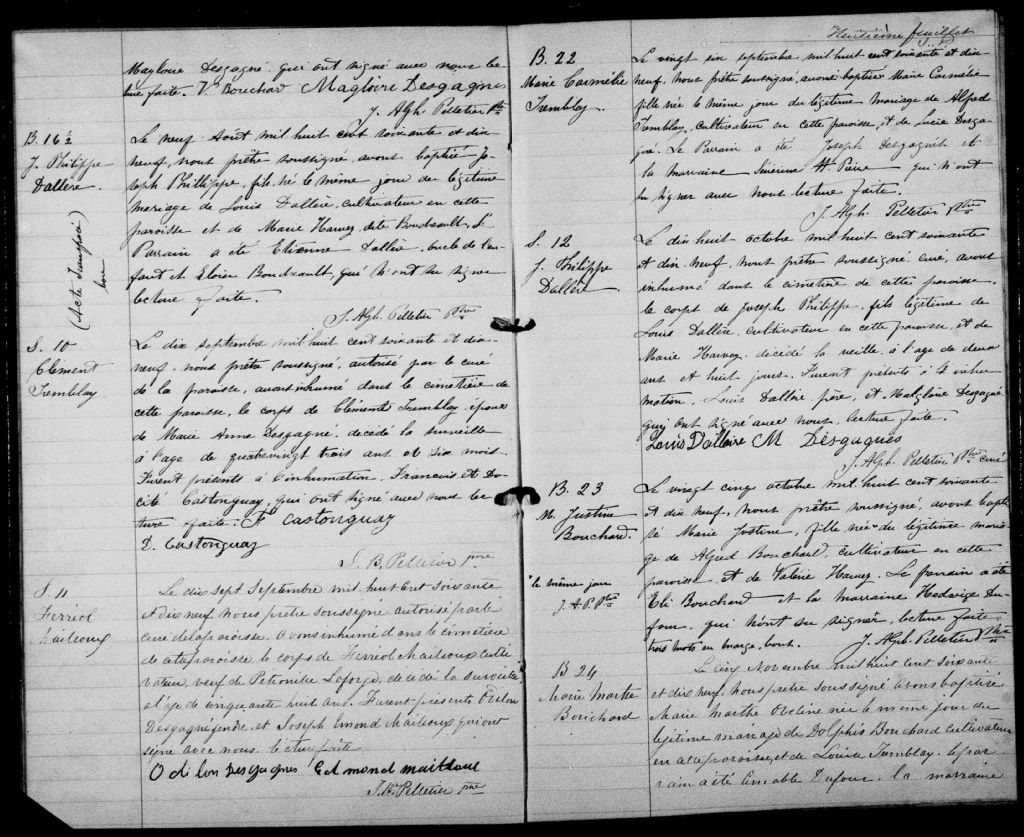 Magloire Desgagné qui ont signé avec nous lec
ture faite. V Bouchard Magloire Desgagnes
J. Alph. Pelletier Ptre
B. 16½
J. Philippe
Dallere
(Acte transposé
bon)
Le neuf Août mil huit cent soixante et dix
neuf, nous prêtre soussigné, avons baptisé Jo-
seph Philippe, fils né le même jour du légitime
mariage de Louis Dallere, cultivateur en cette
paroisse et de Marie Harvez dete Boudreault, Le
Parrain a été Etienne Dallere, oncle de l'en-
fant et Eloïse Boudreault, qui n'ont su signer
lecture faite.
J. Alph. Pelletier Ptre
S. 10
Clément
Tremblay
Le dix septembre mil huit cent soixante et dix-
neuf, nous prêtre soussigné, autorisé par le curé
de la paroisse, avons inhumé dans le cimetière de
cette paroisse, le corps de Clément Tremblay, époux
de Marie Anne Desgagné, décédé la surveille
à l'age de quatrevingt trois ans et six mois.
Furent présents à l'inhumation, Francois et Do-
cité Castonguay, qui ont signé avec nous lec
ture faite. F Castonguaz
D. Castonguaz
J. B. Pelletier ptre
S. 11
Ferréol
Mailloux
Le dix sept Septembre mil huit cent soixante
et dix neuf nous prêtre soussigné autorisé par le
curé de la paroisse avons inhumé dans le cimetière
de cette paroisse le corps de Ferréol Mailloux culti
vateur, veuf de Petronille Laforge, décédé la surveille
al age de cinquante huit ans. Furent presents Odilon
Desgagné gendre, et Joseph Emond Mailloux qui ont
signé avec nous. lecture faite
Odilon Desgagnes Edmond mailloux
J. B. Pelletier ptre
Huitième feuillet
B. 22
Marie Carmélie
Tremblay.
Le vingt six septembre mil huit cent soixante et dix
neuf. Nous prêtre soussigné, avons baptisé Marie Carmélie
fille née le même jour du légitime mariage de Alfred
Tremblay, cultivateur en cette paroisse, et de Lucie Desga-
gné. Le Parrain a été Joseph Desgagnés et
la marraine St. Pierre qui n'ont
su signer avec nous lecture faite.
J. Alph. Pelletier Ptre
S. 12
J. Philippe
Dallere
Le dix huit octobre mil huit cent soixante
et dix neuf, nous prêtre soussigné curé, avons
inhumé dans le cimetière de cette paroisse.
le corps de Joseph Philippe, fils légitime de
Louis Dallere, cultivateur en cette paroisse, et de
Marie Harvez. décédé la veille, à l'age de deux
ans et huit jours. Furent présents à l'inhu-
mation, Louis Dallere père, et Magloire Desgagné
qui ont signé avec nous, lecture faite.
Louis Dallaire M Desgagnés
J. Alph. Pelletier Ptre curé
B. 23
M. Justine
Bouchard.
*le même jour
J. A. P. Ptre
Le vingt cinq octobre mil huit cent soixante
et dix neuf, nous prêtre soussigné, avons bapti-
sé Marie Justine, fille née* du légitime maria-
ge de Alfred Bouchard, cultivateur en cette
paroisse et de Valérie Harvez. Le parrain a été
Eli Bouchard et la marraine Hedwige Du-
four, qui n'ont su signer, lecture faite.
trois mots en marge, bons. J. Alph. Pelletier Ptre
B 24
Marie Marthe
Bouchard
Le cinq Novembre mil huit cent soixante
et dix neuf. Nous prêtre soussigné avons baptisé
Marie Marthe née le même jour du
légitime mariage de Dolphis Bouchard cultivateur
en cette paroisse, et de Louise Tremblay. le par
rain a été Aimable Dufour. la marraine